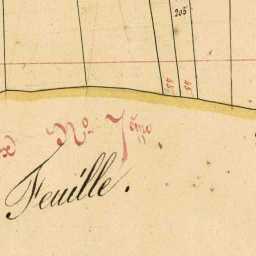 205
55
55
No. 7ème
Feuille.